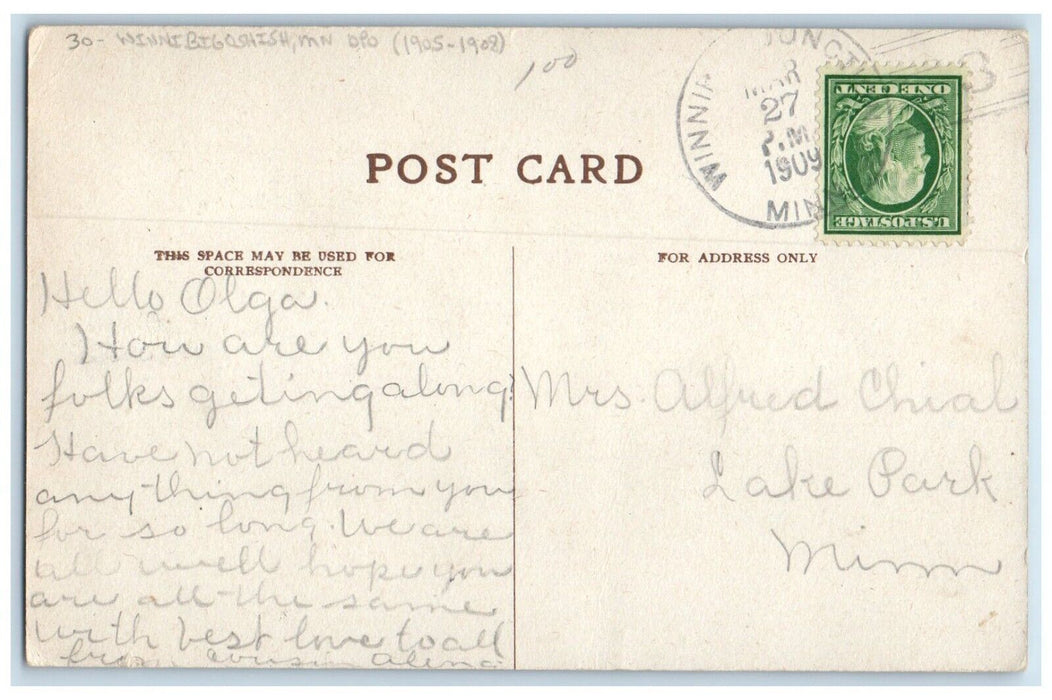 30- WINNIBIGOSHISH, MN DPO (1905-1908)
100
WINNIP JUNCT
MAR
27
P.M.
1909
MIN
3
ONE CENT
U.S. POSTAGE
POST CARD
THIS SPACE MAY BE USED FOR
CORRESPONDENCE
FOR ADDRESS ONLY
Hello Olga.
How are you
folks geting along?
Have not heard
any-thing from you
for so long. We are
all well hope you
are all the same
with best love to all
from cousin Alena
Mrs. Alfred Chial
Lake Park
Minn